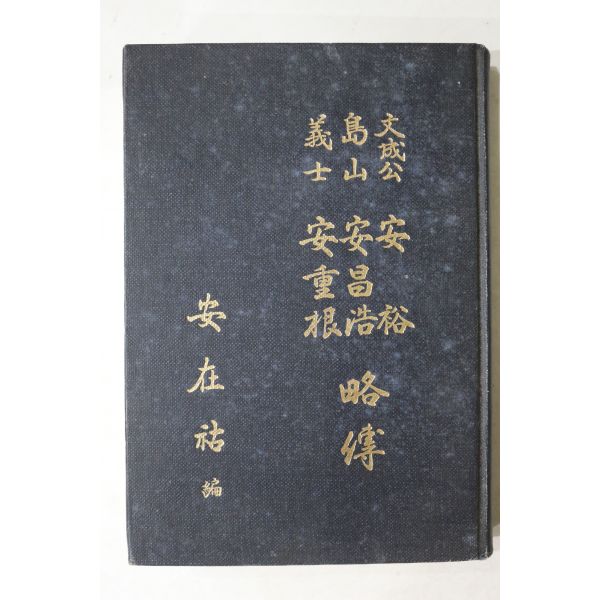 文成公 安裕
島山 安昌浩 略傳
義士 安重根
安在祜 編